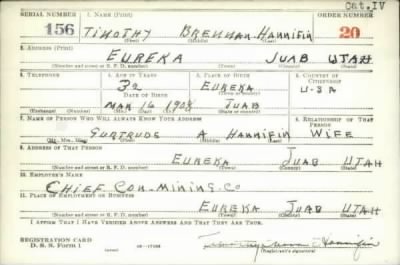 Cat. IV
SERIAL NUMBER 1. NAME (Print) ORDER NUMBER
156 TIMOTHY BRENNAN HANNIFIN 20
2. ADDRESS (Print)
EUREKA JUAB UTAH
(Number and street or R. F. D. number) (Town) (County) (State)
3. TELEPHONE 4. AGE IN YEARS 5. PLACE OF BIRTH 6. COUNTRY OF CITIZENSHIP
32 EUREKA U-S A
DATE OF BIRTH
MAR 16 1908 JUAB
(Exchange) (Number) (Mo.) (Day) (Yr.) (State or country)
7. NAME OF PERSON WHO WILL ALWAYS KNOW YOUR ADDRESS 8. RELATIONSHIP OF THAT PERSON
GURTRUDE A HANNIFIN WIFE
(Mr., Mrs., Miss) (First) (Middle) (Last)
9. ADDRESS OF THAT PERSON
EUREKA JUAB UTAH
(Number and street or R. F. D. number) (Town) (County) (State)
10. EMPLOYER'S NAME
CHIEF CON-MINING-CO
11. PLACE OF EMPLOYMENT OR BUSINESS
EUREKA JUAB UTAH
(Number and street or R. F. D. number) (Town) (County) (State)
I AFFIRM THAT I HAVE VERIFIED ABOVE ANSWERS AND THAT THEY ARE TRUE.
REGISTRATION CARD
D. S. S. Form 1 (Registrant's signature)